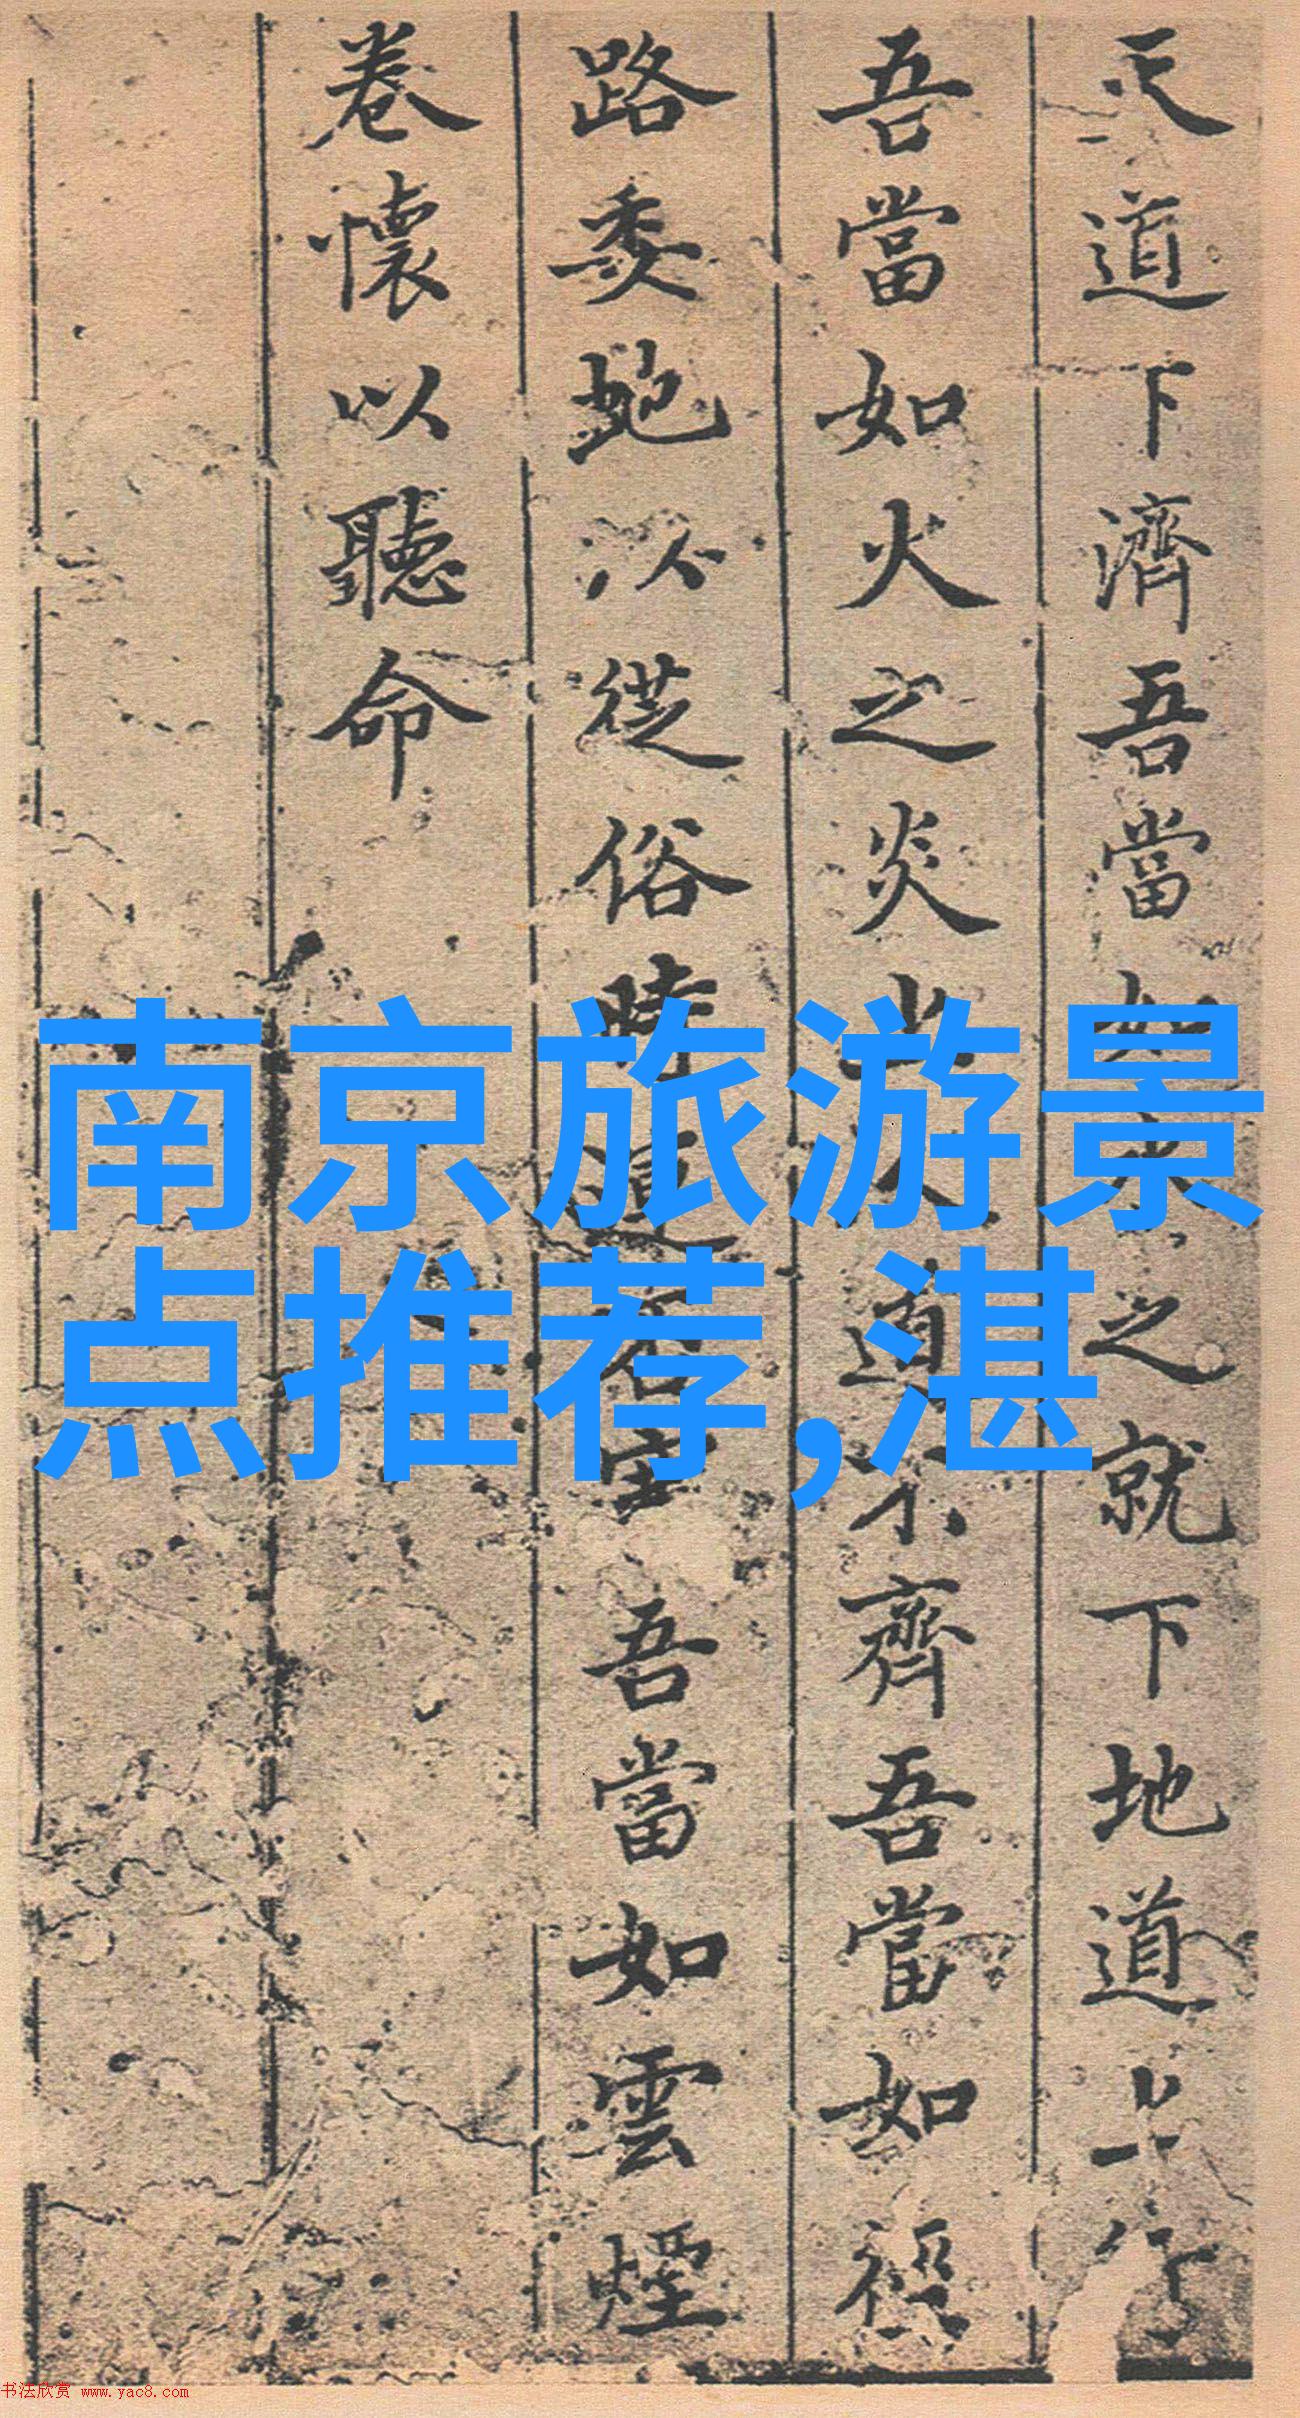 天道下濟吾當如水之就下地道上行
吾當如火之炎上人道不齊吾當如經
路委蛇以從俗時道不宝吾當如雲煙
卷懷以聽命
南京旅游景
点推荐,湛
书法欣赏 www.yac8.com